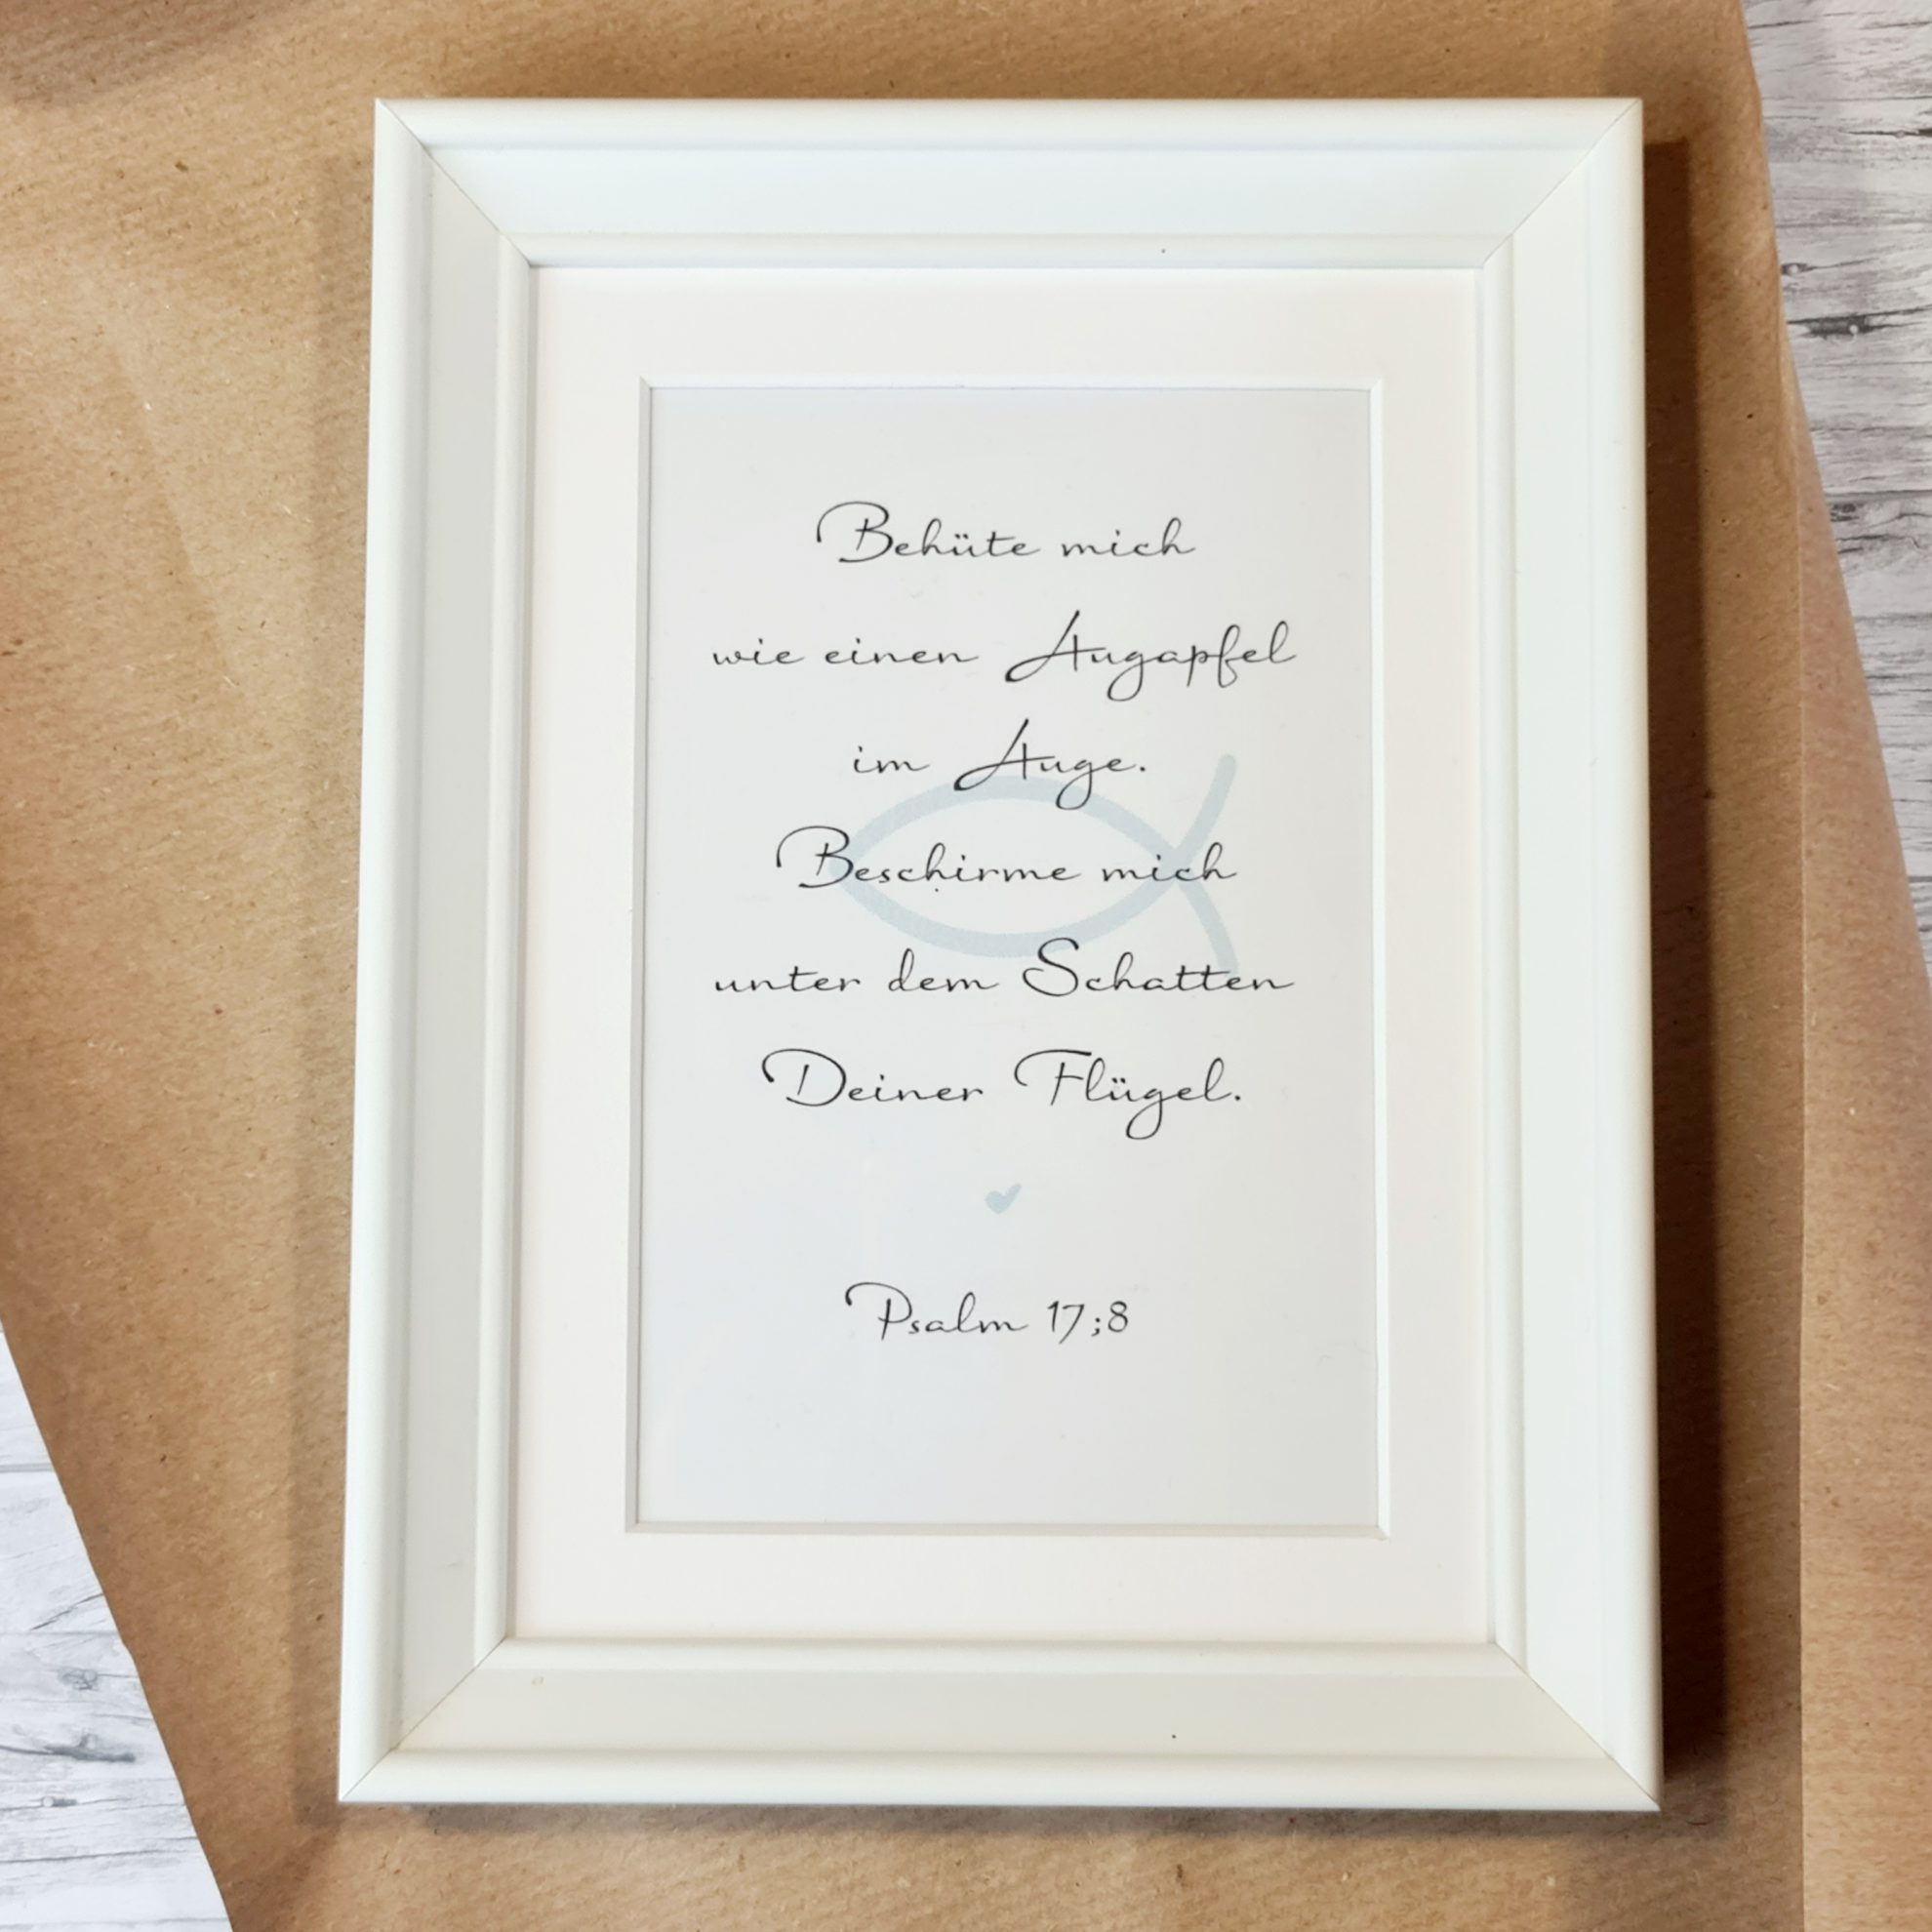 Behüte mich
wie einen Augapfel
im Auge.
Beschirme mich
unter dem Schatten
Deiner Flügel.
Psalm 17;8